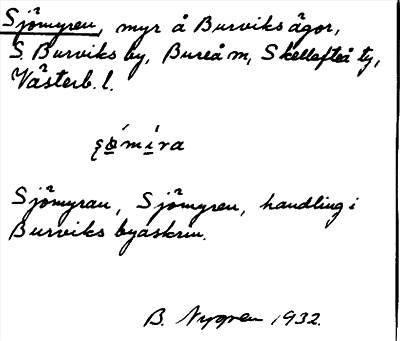 Sjömyren, myr å Burviks ägor,
S. Burviks by, Bureå m, Skellefteå tg,
Västerb. l.
Sjömyran, Sjömyren, handling i
Burviks byaskrin.
B. Nygren 1932.